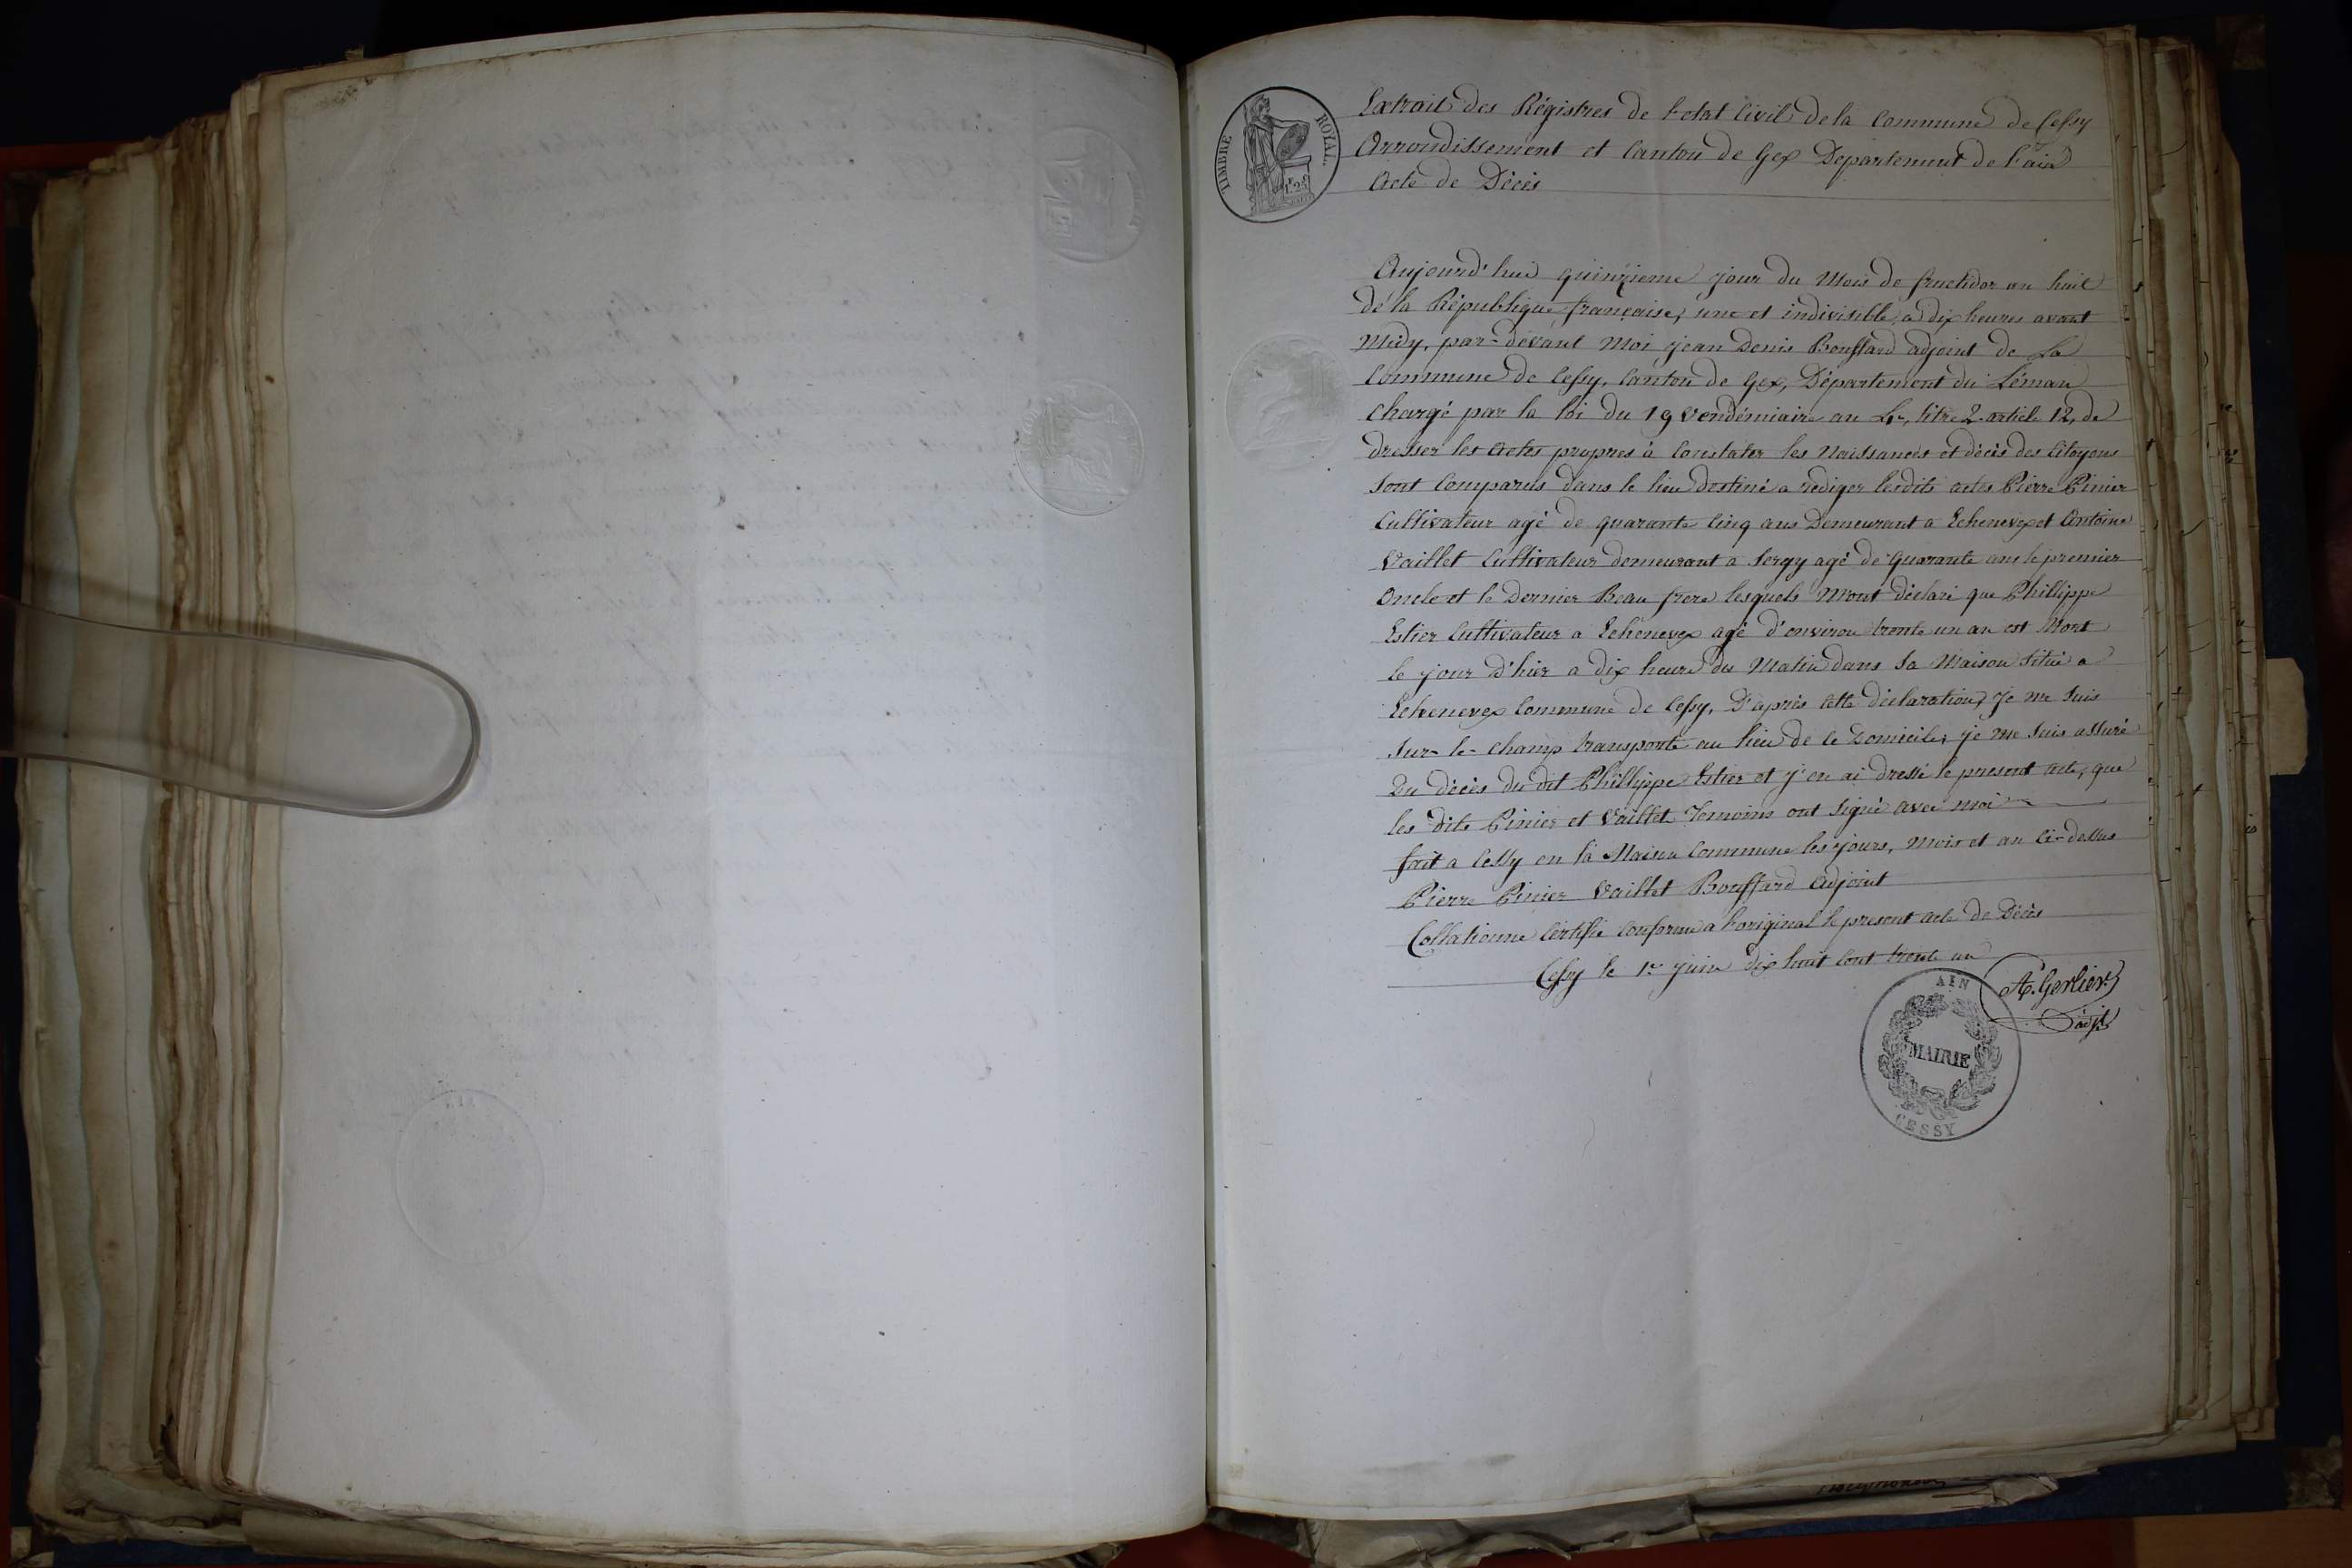 TIMBRE ROYAL.
1f. 25c
Extrait des Régistres de l'etat Civil de la Commune de Cessy
Arrondissement et Canton de Gex Departement de l'ain
Acte de Décès
Aujourd'hui quinzieme jour du Mois de fructidor an huit
de la République française, une et indivisible, a dix heures avant
Midy, par-devant Moi jean Denis Bouffard adjoint de La
Commune de Cessy, Canton de Gex, Département du Léman
Chargé par la loi du 19 vendémiaire an 4e, titre 2. article 12, de
dresser les Actes propres à Constater les Naissances et décès des Citoyens
sont Comparus dans le lieu destiné a rédiger lesdits actes Pierre Pinier
Cultivateur agé de quarante Cinq ans Demeurant a Echenevex et Antoine
Vaillet Cultivateur demeurant a Sergy agé de quarante ans le premier
Oncle et le Dernier Beau frere lesquels Mont déclaré que Phillippe
Estier Cultivateur a Echenevex agé d'environ trente un an est Mort
le jour d'hier a dix heure du Matin dans sa Maison Situé a
Echenevex Commune de Cessy, D'après cette déclaration, Je me suis
sur-le-champ transporté au lieu de ce Domicile, je me suis assuré
Du décès du dit Phillippe Estier et j'en ai dressé le present acte, que
les dits Pinier et Vaillet Temoins ont signé avec moi
fait a Cessy en la Maison Commune les jours, mois et an ci-dessus
Pierre Pinier Vaillet Bouffard adjoint
Collationne Certifié Conforme a l'original le present acte de Décès
Cessy le 1er juin dix huit cent trente un
A. Gerlier
adjt
AIN
MAIRIE
CESSY